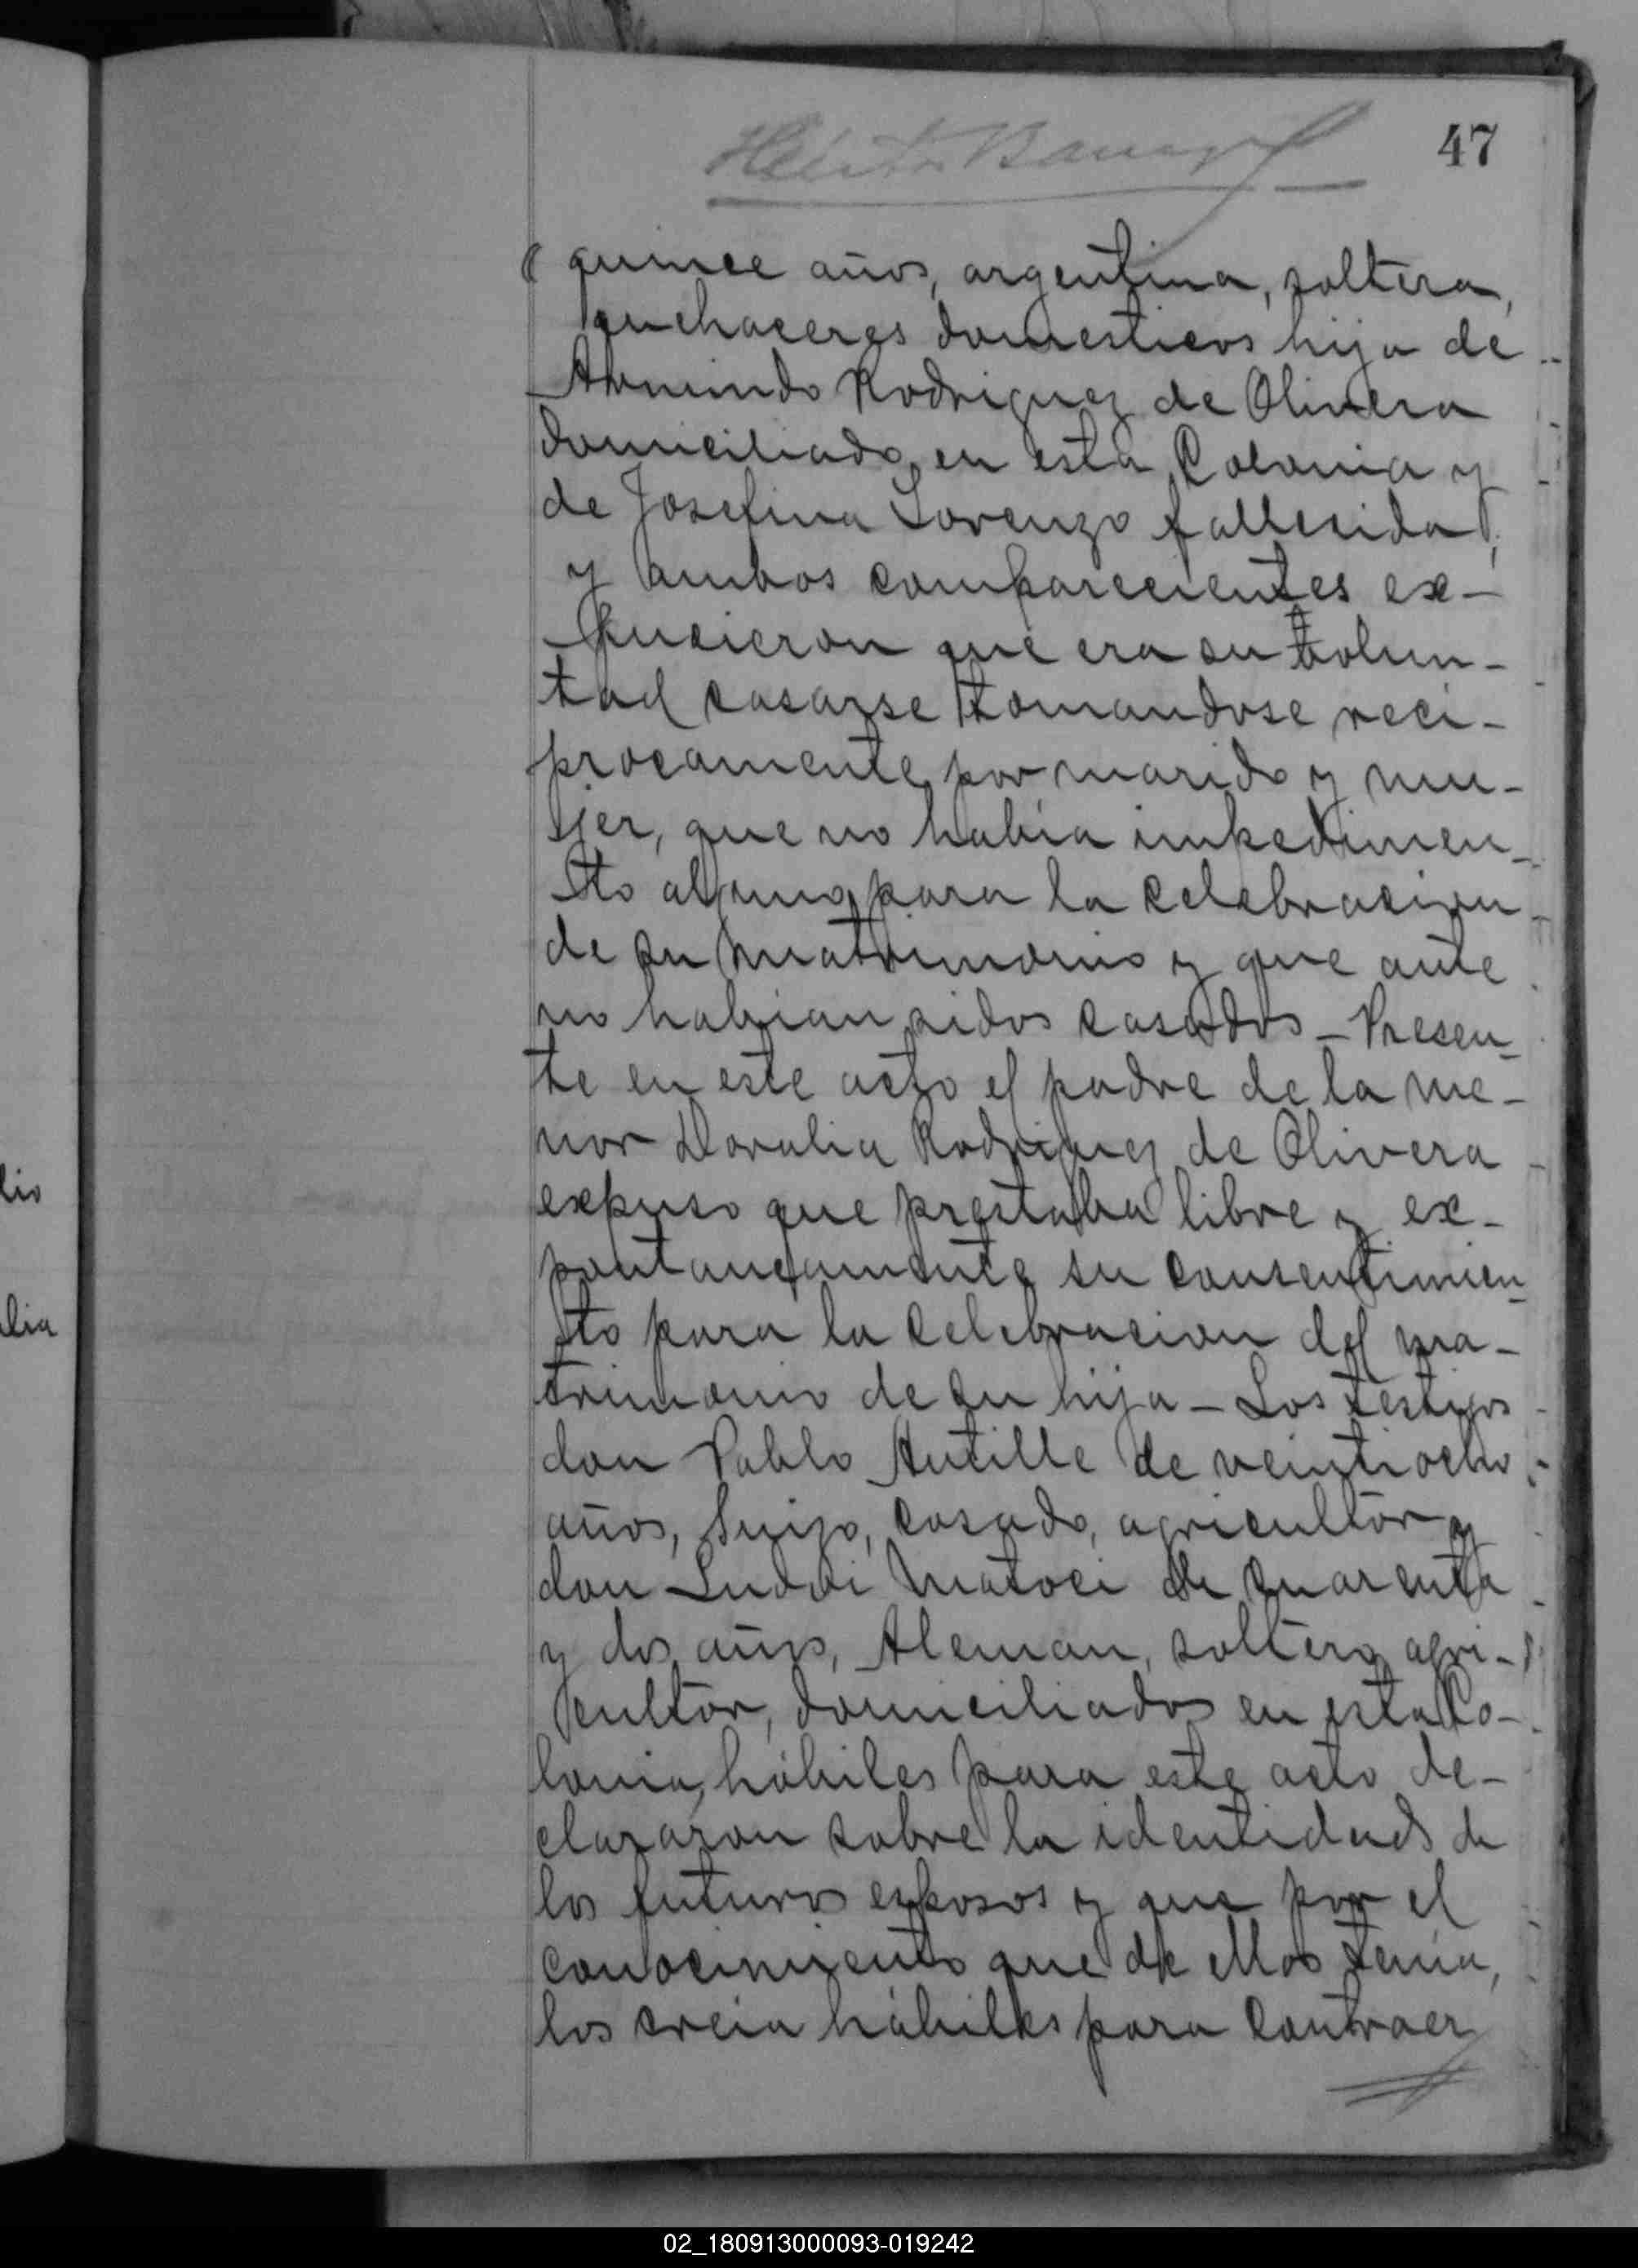 47
quince años, argentina, soltera,
quehaceres domesticos hija de
Armindo Rodriguez de Olivera
domiciliado en esta Colonia y
de Josefina Lorenzo fallecida;
y ambos comparecientes ex-
pusieron que era su volun-
tad casarse tomandose reci-
procamente por marido y mu-
jer, que no había impedimen-
to alguno para la celebracion
de su matrimonio y que ante
no habian sidos casados - Presen-
te en este acto el padre de la me-
nor Doralia Rodriguez de Olivera
expuso que prestaba libre y ex-
pontaneamente su consentimien-
to para la celebracion del ma-
trimonio de su hija - Los testigos
don Pablo Antille de veintiocho
años, Suizo, casado, agricultor y
don Ludvi Matoci de cuarenta
y dos años, Aleman, soltero, agri-
cultor, domiciliados en esta Co-
lonia, hábiles para este acto de-
clararon sobre la identidad de
los futuros esposos y que por el
conocimiento que de ellos tenia,
los creia hábiles para contraer
lio
alia
02_180913000093-019242